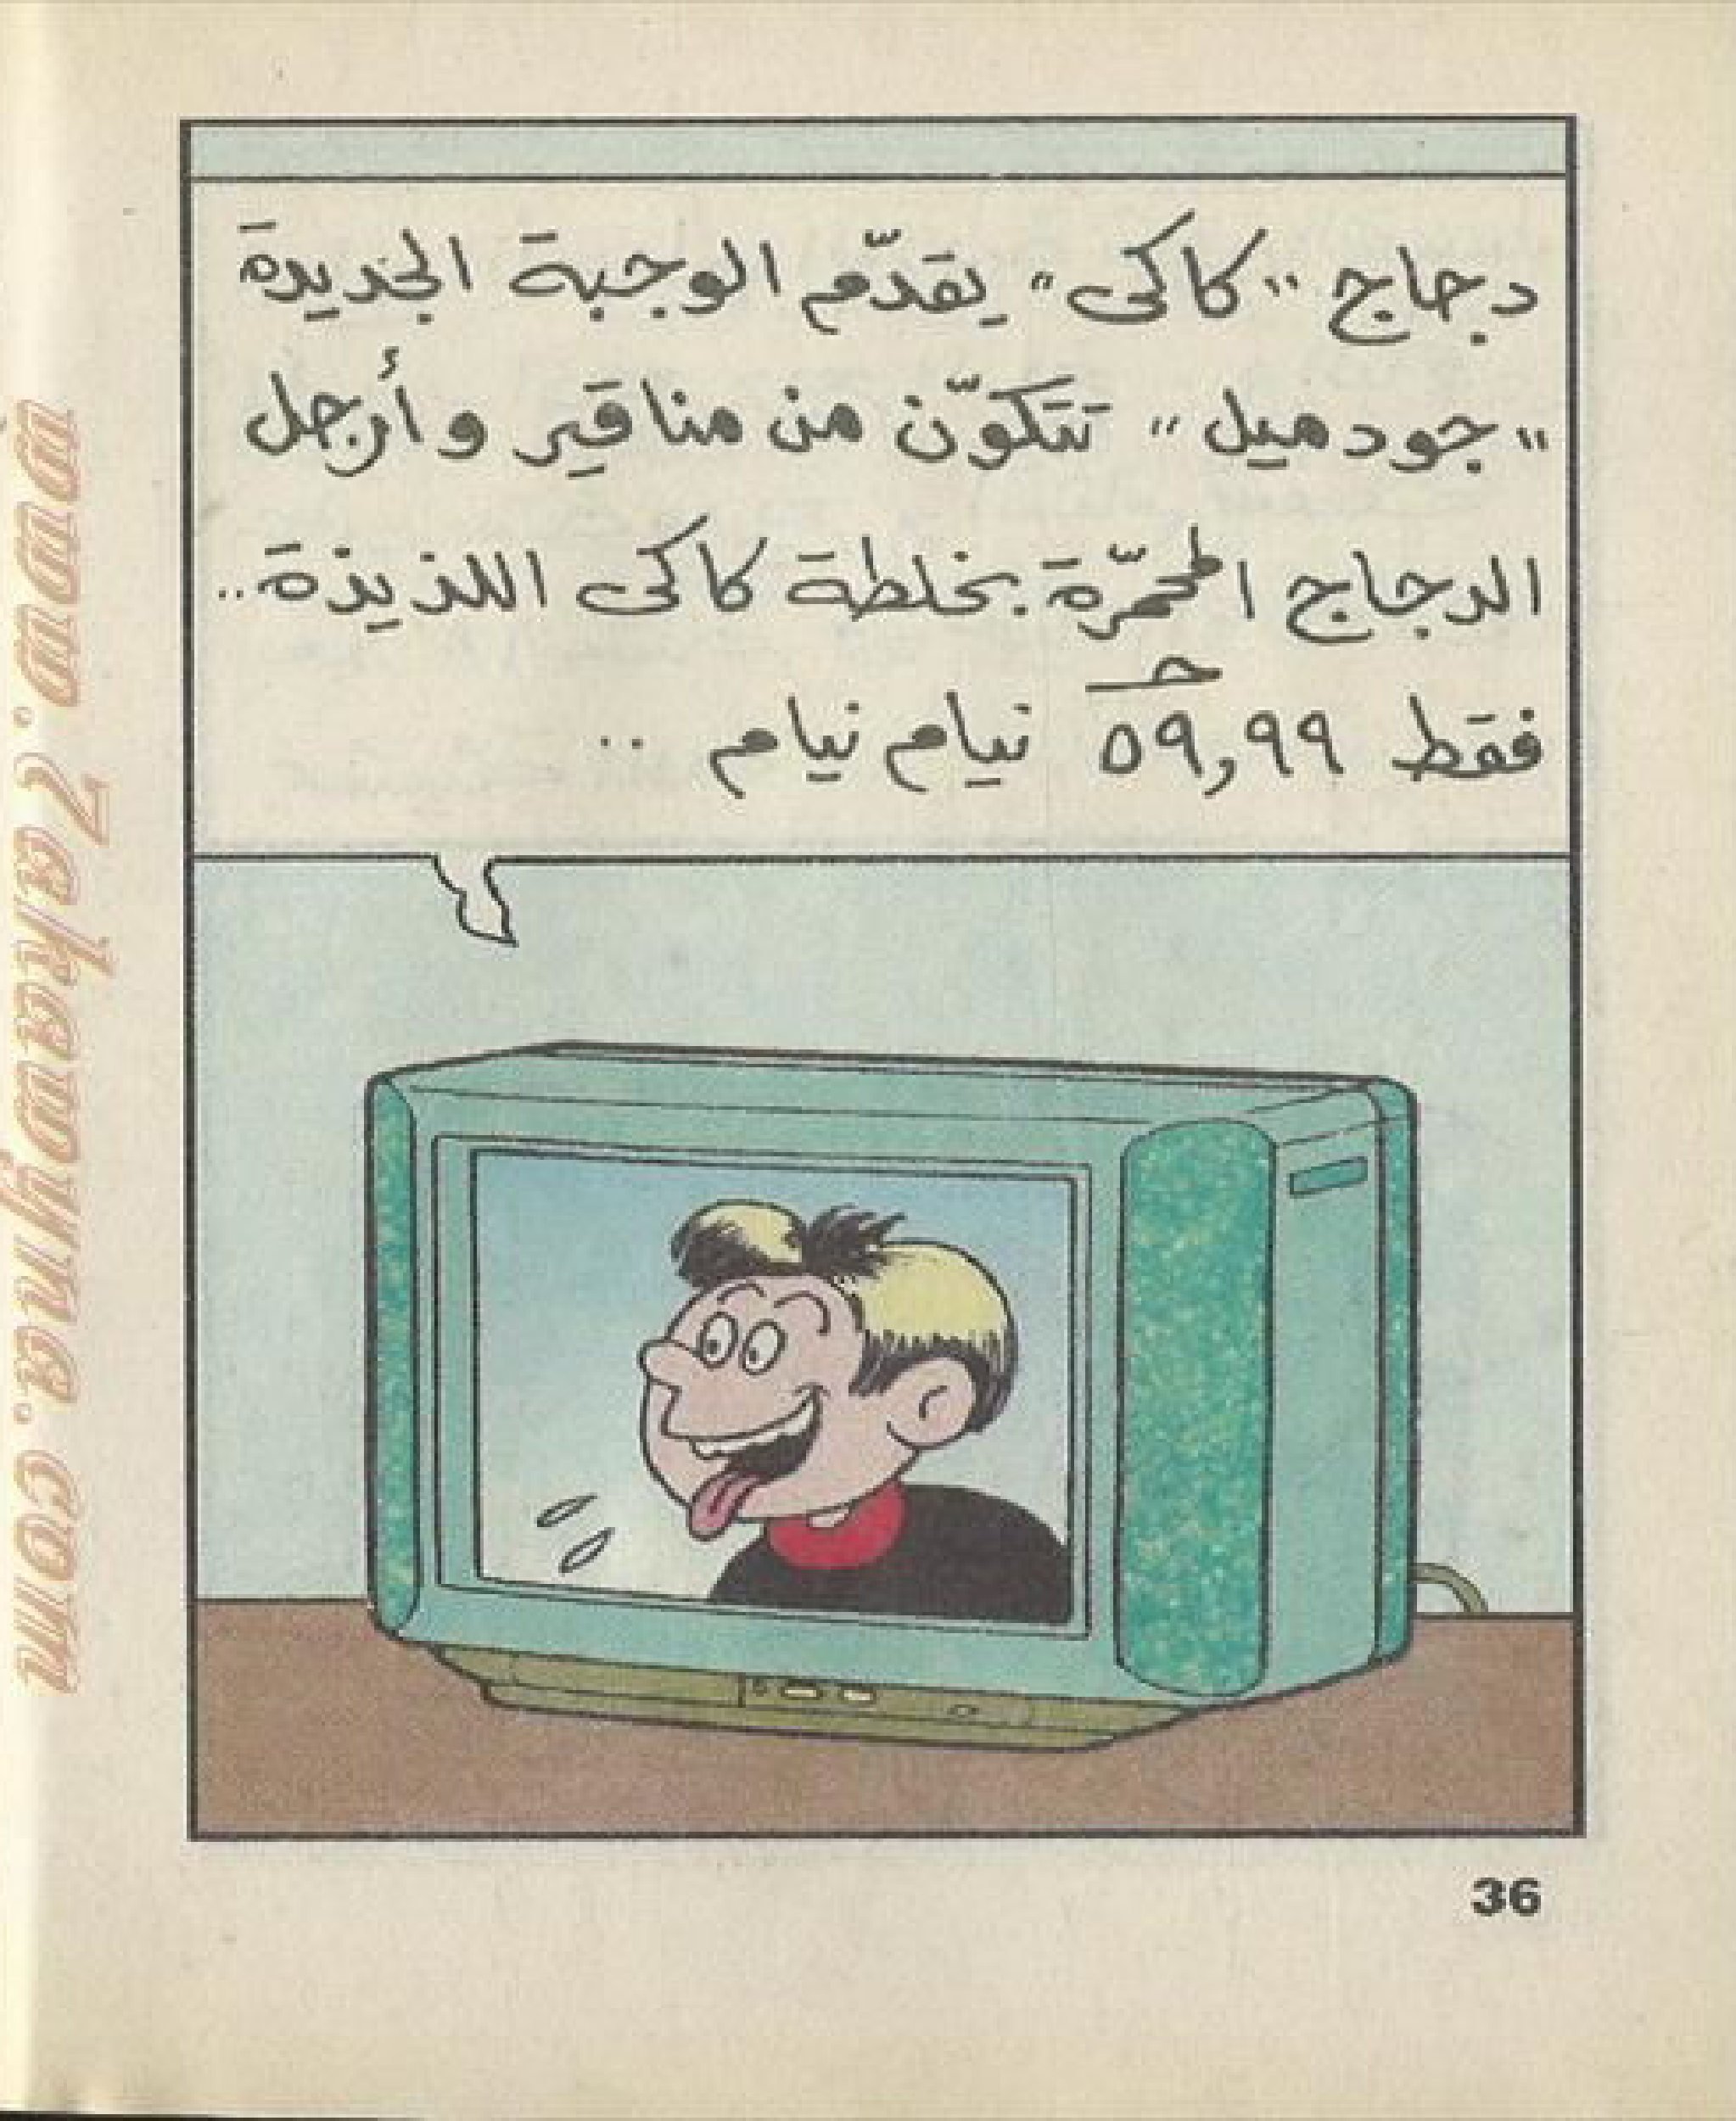 دجاج "كاكى" يقدّم الوجبة الجديدة
"جود ميل" تتكوّن من مناقير وأرجل
الدجاج المحمّرة بخلطة كاكى اللذيذة..
فقط ٥٩,٩٩ جـ نيام نيام ..
36
www.Zakawyna.com